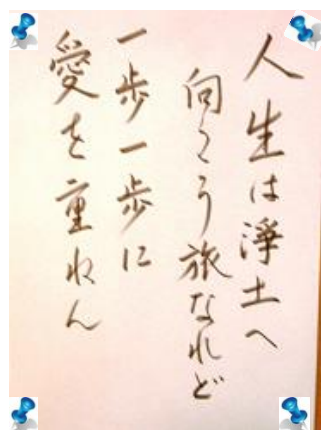 人生は淨土へ
向こう旅なれど
一歩一歩に
愛を重ねん